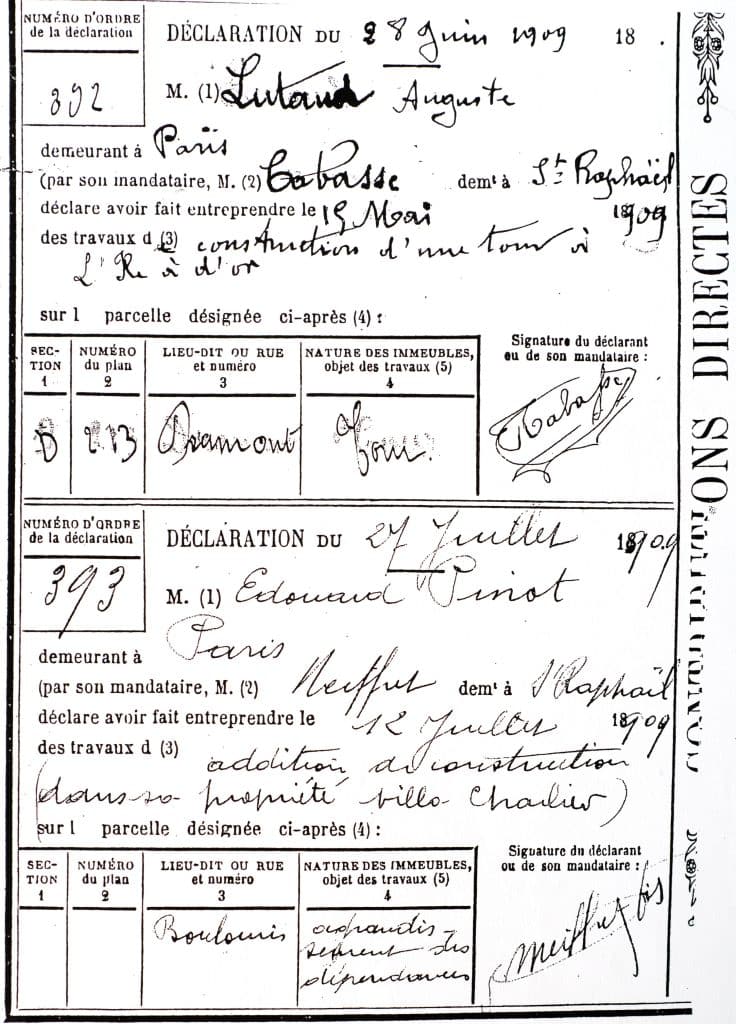 NUMÉRO D'ORDRE
de la déclaration
392
DÉCLARATION DU 28 Juin 1909 18 .
M. (1) Lutaud Auguste
demeurant à Paris
(par son mandataire, M. (2) Cabasse demt à St Raphaël
déclare avoir fait entreprendre le 15 Mai 1909
des travaux d (3) e construction d'une tour à
L'Ile d'or
sur l parcelle désignée ci-après (4) :
SEC-TION
1
NUMÉRO du plan
2
LIEU-DIT OU RUE et numéro
3
NATURE DES IMMEUBLES, objet des travaux (5)
4
Signature du déclarant
ou de son mandataire :
D 213 Dramont Tour.
Cabasse
NUMÉRO D'ORDRE
de la déclaration
393
DÉCLARATION DU 27 Juillet 1909
M. (1) Edouard Pinot
demeurant à Paris
(par son mandataire, M. (2) Meiffret demt à St Raphaël
déclare avoir fait entreprendre le 12 Juillet 1909
des travaux d (3) addition de construction
(dans sa propriété villa Charlier)
sur l parcelle désignée ci-après (4) :
SEC-TION
1
NUMÉRO du plan
2
LIEU-DIT OU RUE et numéro
3
NATURE DES IMMEUBLES, objet des travaux (5)
4
Signature du déclarant
ou de son mandataire :
Boulouris
agrandis-
sement des
dépendances
Meiffret fils
CONTRIBUTIONS DIRECTES